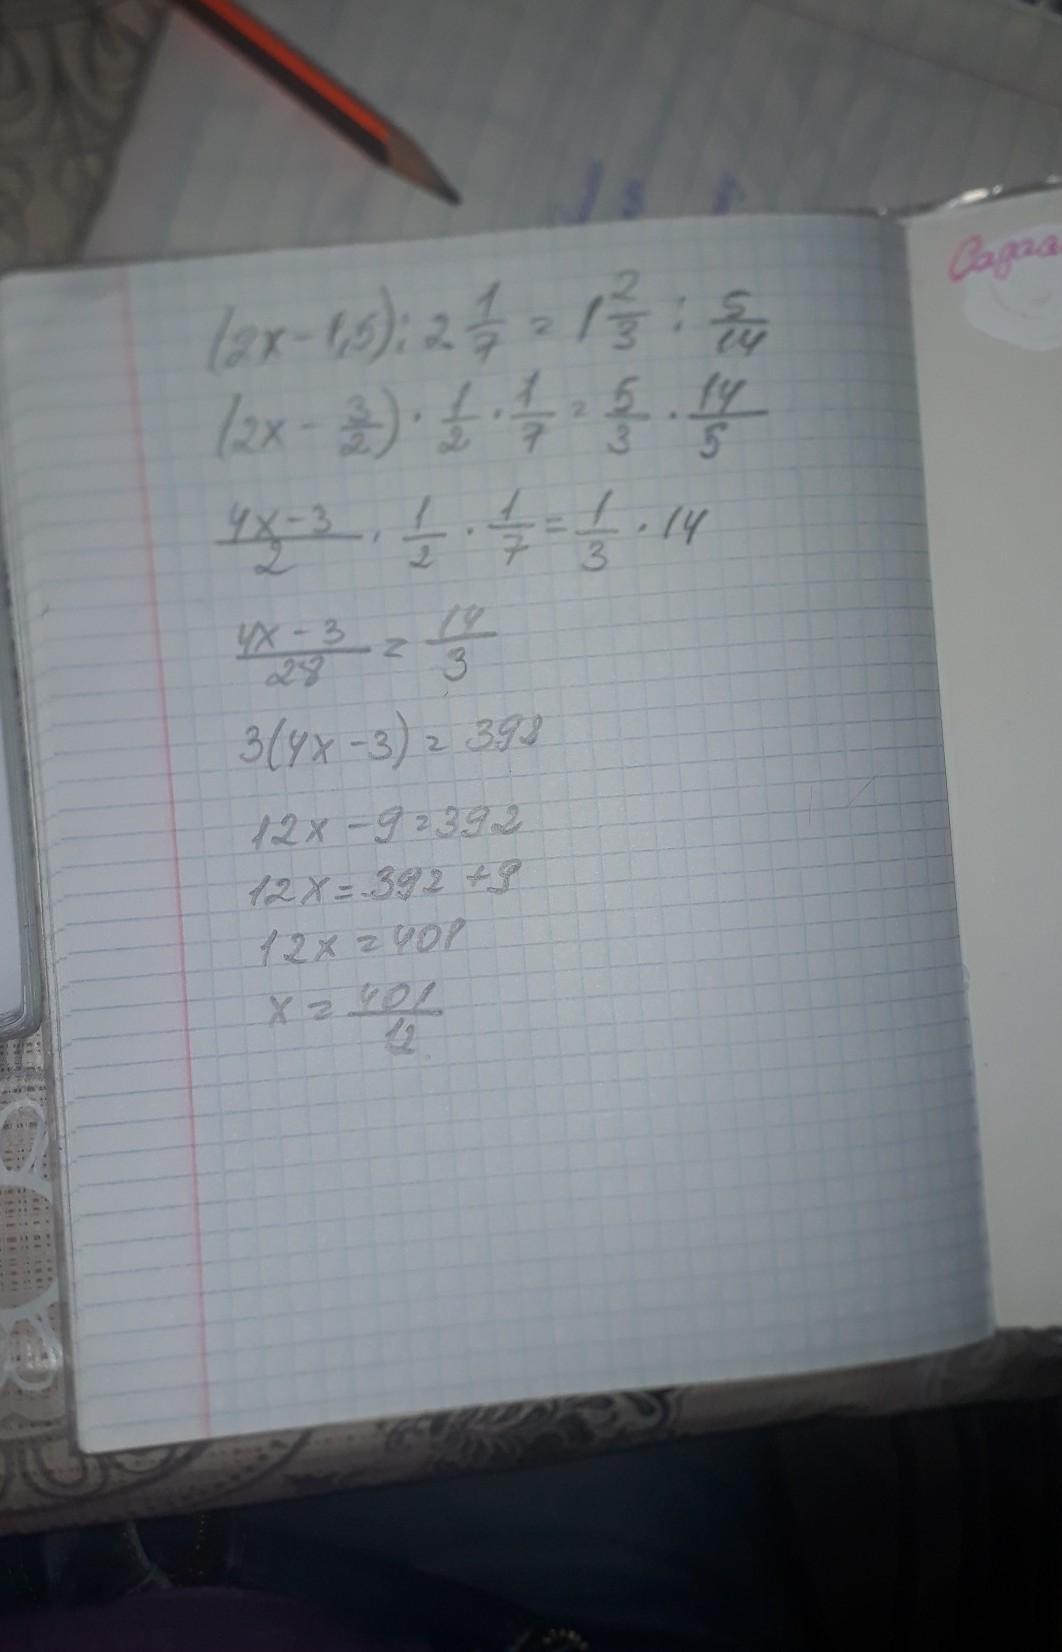 (2x-1,5):2 1/7 = 1 2/3 : 5/14
(2x - 3/2) · 1/2 · 1/7 = 5/3 · 14/5
4x-3/2 · 1/2 · 1/7 = 1/3 · 14
4x-3/28 = 14/3
3(4x-3) = 392
12x-9=392
12x=392+9
12x=401
x=401/12